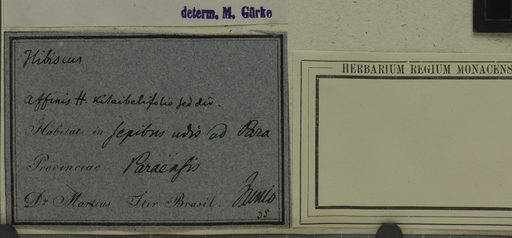 determ. M. Gürke
Hibiscus
affinis H. kitaibelifolio sed div.
Habitat in sepibus udis ad Para
Provinciae Paraensis
Dr. Martius Iter Brasil. Junio
38
HERBARIUM REGIUM MONACENS